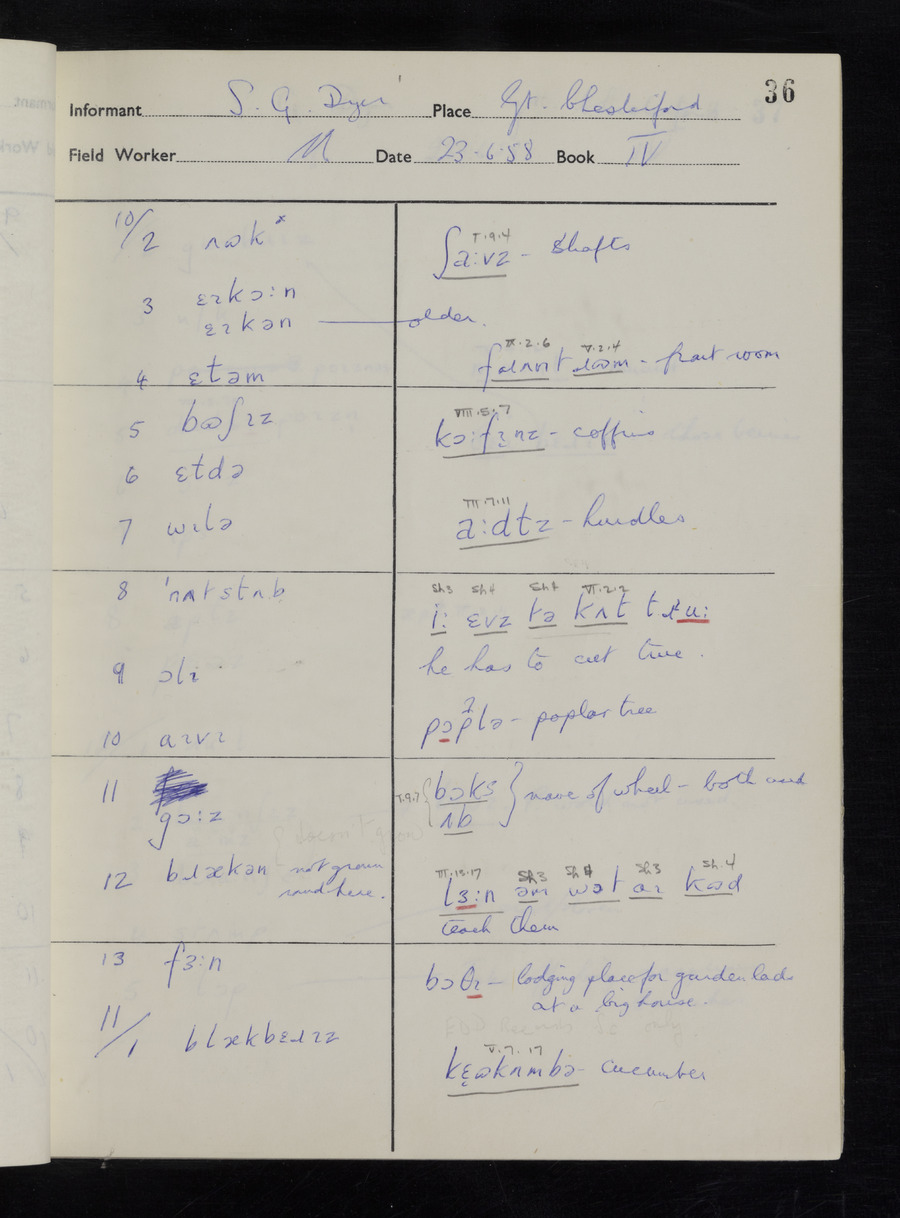 36
Informant S. G. Dyer Place Gt. Chesterford
Field Worker Date 23-6-58 Book IV
10/2 ɹɷk*
3 ɛɪkɔ:n
ɛɪkən older.
4 ɛtəm
5 bɷʃɪz
6 ɛɫdə
7 wɪlə
8 'nʌtstʌb
9 ɔli
10 aɪvɪ
11
gɔ:z
12 bɹækən not grown
round here.
13 fɜ:n
11/1 blækbɛɹɪz
I.9.4
ʃa:vz - shafts
V.2.4
front room
VIII.5.7
kɔ:fɪnz - coffins
III.7.11
a:dɫz - hurdles
Sh3 Sh4 Sh4 VI.2.2
i: ɛvz tə kʌt tɹu:
he has to cut true.
pɔplə - poplar tree
I.9.7 { bɔks } nave of wheel - both used
ʌb
III.13.17 Sh3 Sh4 Sh3 Sh.4
lɜ:n əm wɔt aɪ kɷd
teach them
bɔθɪ - lodging place for garden lads
at a big house.
EDD Records Sc only
V.7.17
kɛɷkʌmbə - cucumber